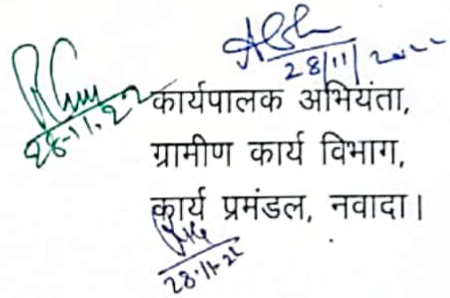 28/11/2022
28.11.22
कार्यपालक अभियंता,
ग्रामीण कार्य विभाग,
कार्य प्रमंडल, नवादा।
28.11.22